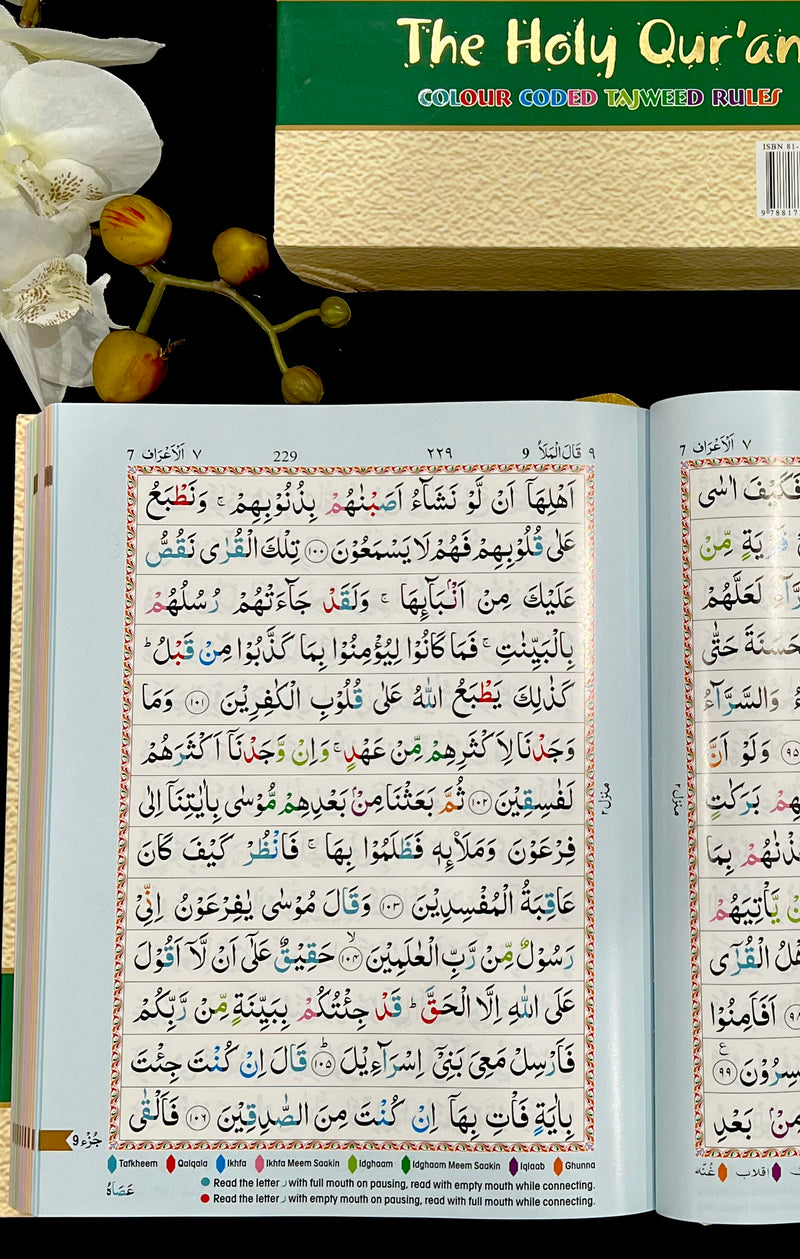 The Holy Qur'an
COLOUR CODED TAJWEED RULES
ISBN 81-
9 78817
٩ قَالَ الْمَلَاُ 9
٢٢٩
229
٧ اَلْاَعْرَاف 7
اَهْلِهَاۤ اَنْ لَّوْ نَشَآءُ اَصَبْنٰهُمْ بِذُنُوْبِهِمْ ۚ وَنَطْبَعُ
عَلٰى قُلُوْبِهِمْ فَهُمْ لَا يَسْمَعُوْنَ ﴿١٠٠﴾ تِلْكَ الْقُرٰى نَقُصُّ
عَلَيْكَ مِنْ اَنْۢبَآىِٕهَا ۚ وَلَقَدْ جَآءَتْهُمْ رُسُلُهُمْ
بِالْبَيِّنٰتِ ۚ فَمَا كَانُوْا لِيُؤْمِنُوْا بِمَا كَذَّبُوْا مِنْ قَبْلُ ؕ
كَذٰلِكَ يَطْبَعُ اللّٰهُ عَلٰى قُلُوْبِ الْكٰفِرِيْنَ ﴿١٠١﴾ وَمَا
وَجَدْنَا لِاَكْثَرِهِمْ مِّنْ عَهْدٍ ۚ وَاِنْ وَّجَدْنَاۤ اَكْثَرَهُمْ
لَفٰسِقِيْنَ ﴿١٠٢﴾ ثُمَّ بَعَثْنَا مِنْۢ بَعْدِهِمْ مُّوْسٰى بِاٰيٰتِنَاۤ اِلٰى
فِرْعَوْنَ وَمَلَا۟ىِٕهٖ فَظَلَمُوْا بِهَا ۚ فَانْظُرْ كَيْفَ كَانَ
عَاقِبَةُ الْمُفْسِدِيْنَ ﴿١٠٣﴾ وَقَالَ مُوْسٰى يٰفِرْعَوْنُ اِنِّىْ
رَسُوْلٌ مِّنْ رَّبِّ الْعٰلَمِيْنَ ﴿١٠٤﴾ۙ حَقِيْقٌ عَلٰۤى اَنْ لَّاۤ اَقُوْلَ
عَلَى اللّٰهِ اِلَّا الْحَقَّ ؕ قَدْ جِئْتُكُمْ بِبَيِّنَةٍ مِّنْ رَّبِّكُمْ
فَاَرْسِلْ مَعِىَ بَنِىْۤ اِسْرَآءِيْلَ ﴿١٠٥﴾ؕ قَالَ اِنْ كُنْتَ جِئْتَ
بِاٰيَةٍ فَاْتِ بِهَاۤ اِنْ كُنْتَ مِنَ الصّٰدِقِيْنَ ﴿١٠٦﴾ فَاَلْقٰى
عَصَاهُ
منزل ٢
جُزْء 9
Tafkheem Qalqala Ikhfa Ikhfa Meem Saakin Idghaam Idghaam Meem Saakin Iqlaab Ghunna
Read the letter ر with full mouth on pausing, read with empty mouth while connecting.
Read the letter ر with empty mouth on pausing, read with full mouth while connecting.
٧ اَلْاَعْرَاف 7
فَكَيْفَ اٰسٰى
قَرْيَةٍ مِّنْ
لَعَلَّهُمْ
حَتّٰى
وَالسَّرَّآءُ
٩٥ وَلَوْ اَنَّ
بَرَكٰتٍ
بِمَا
يَّاْتِيَهُمْ
الْقُرٰٓى
اَفَاَمِنُوْا
٩٩
بَعْدِ
منزل ٢
اقلاب غُنّه